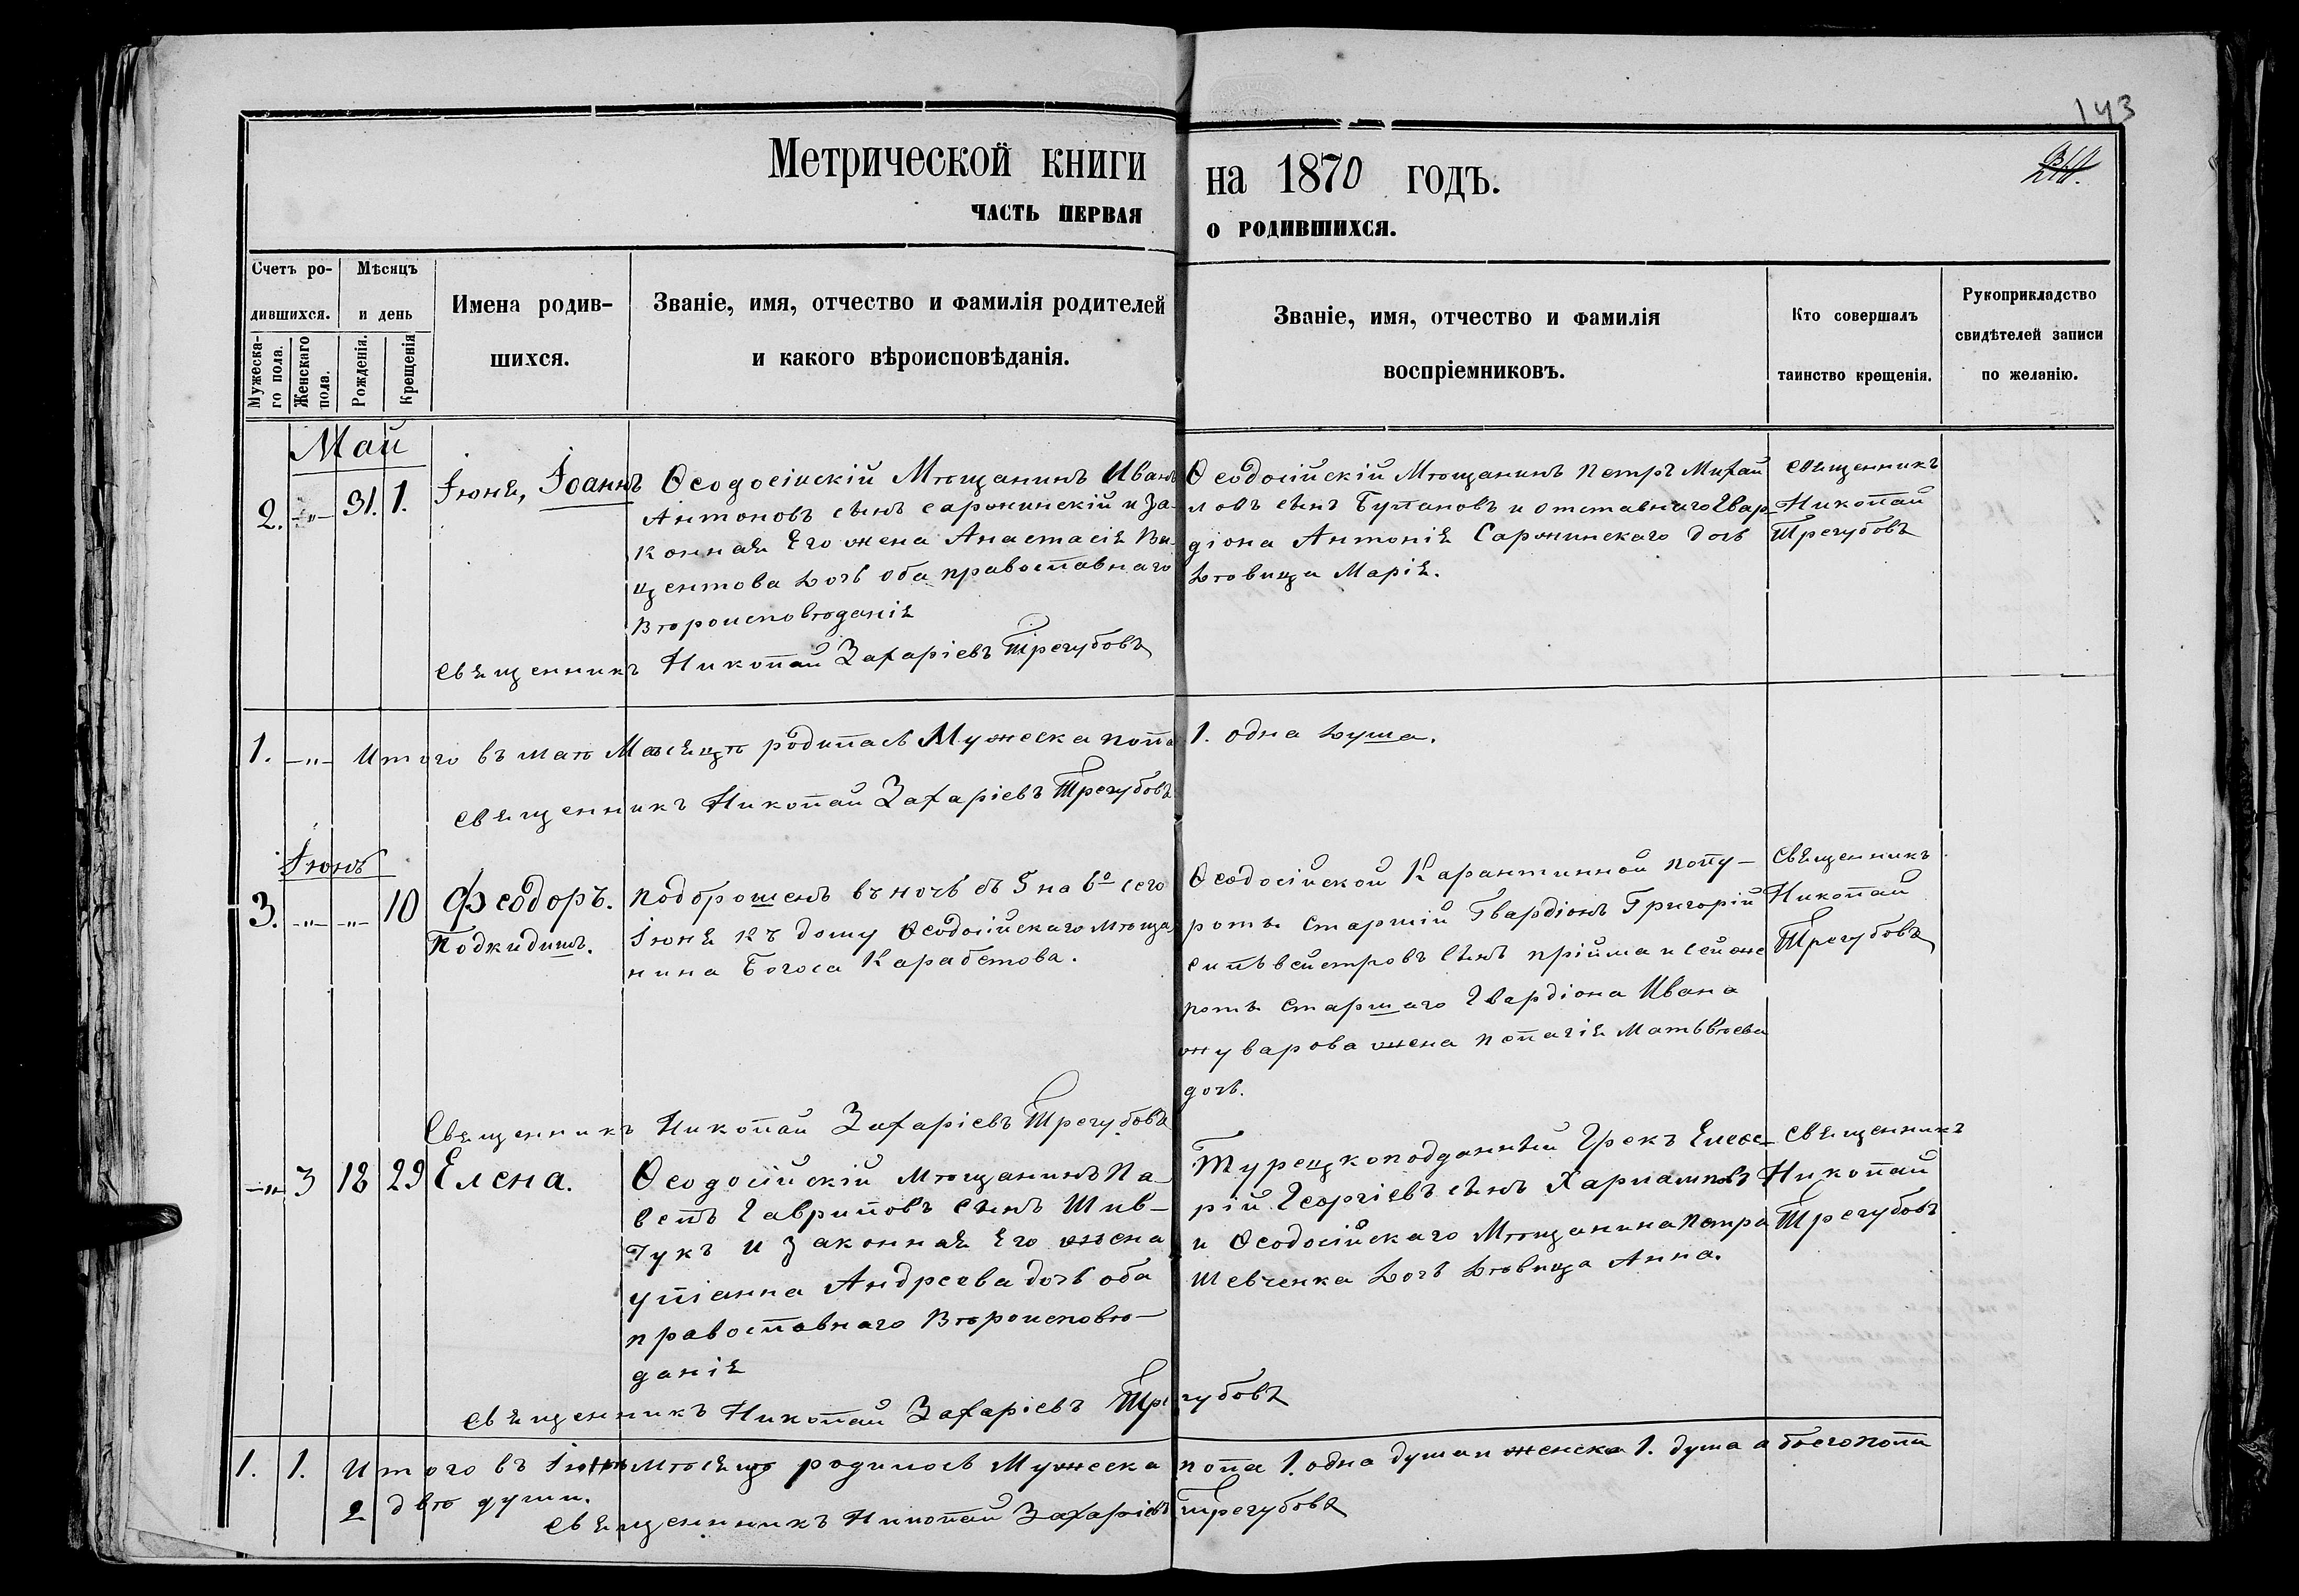 143
Метрической книги на 1870 годъ.
ЧАСТЬ ПЕРВАЯ О РОДИВШИХСЯ.
Счетъ родившихся.
Мужескаго пола.
Женскаго пола.
Мѣсяцъ и день
Рожденія.
Крещенія
Имена родившихся.
Званіе, имя, отчество и фамилія родителей
и какого вѣроисповѣданія.
Званіе, имя, отчество и фамилія
воспріемниковъ.
Кто совершалъ
таинство крещенія.
Рукоприкладство
свидѣтелей записи
по желанію.
Май
2. -„- 31. 1.
Іюня, Іоаннъ
Ѳеодосійскій Мѣщанинъ Иванъ
Антоновъ сынъ Саржинскій и За-
конная Его жена Анастасія Ви-
центова дочь оба православнаго
Вѣроисповѣданія
Ѳеодосійскій Мѣщанинъ Петръ Михай
ловъ сынъ Булановъ и отставнаго Гвар-
діона Антонія Саржинскаго дочь
дѣвица Марія.
Священникъ
Николай
Трегубовъ
Священникъ Николай Захаріевъ Трегубовъ
1. -„- Итого въ маѣ Мѣсяцѣ родилась Мужеска пола 1. одна душа.
Священникъ Николай Захаріевъ Трегубовъ
Іюнь
3. -„- -„- 10
Феодоръ.
Подкидишъ.
подброшенъ въ ночь съ 5 на 6е сего
Іюня къ дому Ѳеодосійскаго мѣща
нина Богоса Карабетова.
Ѳеодосійской Карантинной полу-
роты старшій Гвардіонъ Григорій
Сильвейстровъ сынъ Прійма и сей же
роты старшаго Гвардіона Ивана
жуварова жена Пелагія Матвѣева
дочь.
Священникъ
Николай
Трегубовъ
Священникъ Николай Захаріевъ Трегубовъ
-„- 3 18 29
Елена.
Ѳеодосійскій мѣщанинъ Па-
велъ Гавриловъ сынъ Шив-
гукъ и законная Его жена
уліанна Андреева дочь оба
православнаго Вѣроисповѣ-
данія
Турецкоподданный Грекъ Елев-
рій Георгіевъ сынъ Харламповъ
и Ѳеодосійскаго Мѣщанина Петра
Шевченка дочь дѣвица Анна.
Священникъ
Николай
Трегубовъ
Священникъ Николай Захаріевъ Трегубовъ
1. 1. Итого въ Іюнѣ мѣсяцѣ родилось Мужеска пола 1. одна душа и женска 1. душа а обоего пола
2 двѣ души.
Священникъ Николай Захаріевъ Трегубовъ